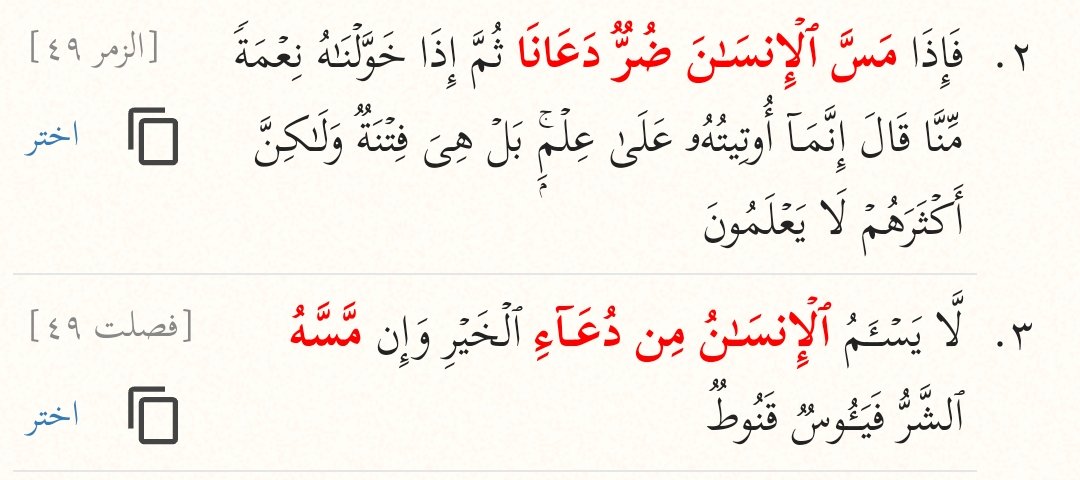 ٢. فَإِذَا مَسَّ ٱلْإِنسَـٰنَ ضُرٌّ دَعَانَا ثُمَّ إِذَا خَوَّلْنَـٰهُ نِعْمَةً [الزمر ٤٩]
مِّنَّا قَالَ إِنَّمَآ أُوتِيتُهُۥ عَلَىٰ عِلْمٍۭ ۚ بَلْ هِىَ فِتْنَةٌ وَلَـٰكِنَّ
اختر
أَكْثَرَهُمْ لَا يَعْلَمُونَ
٣. لَّا يَسْـَٔمُ ٱلْإِنسَـٰنُ مِن دُعَآءِ ٱلْخَيْرِ وَإِن مَّسَّهُ [فصلت ٤٩]
ٱلشَّرُّ فَيَـُٔوسٌ قَنُوطٌ
اختر